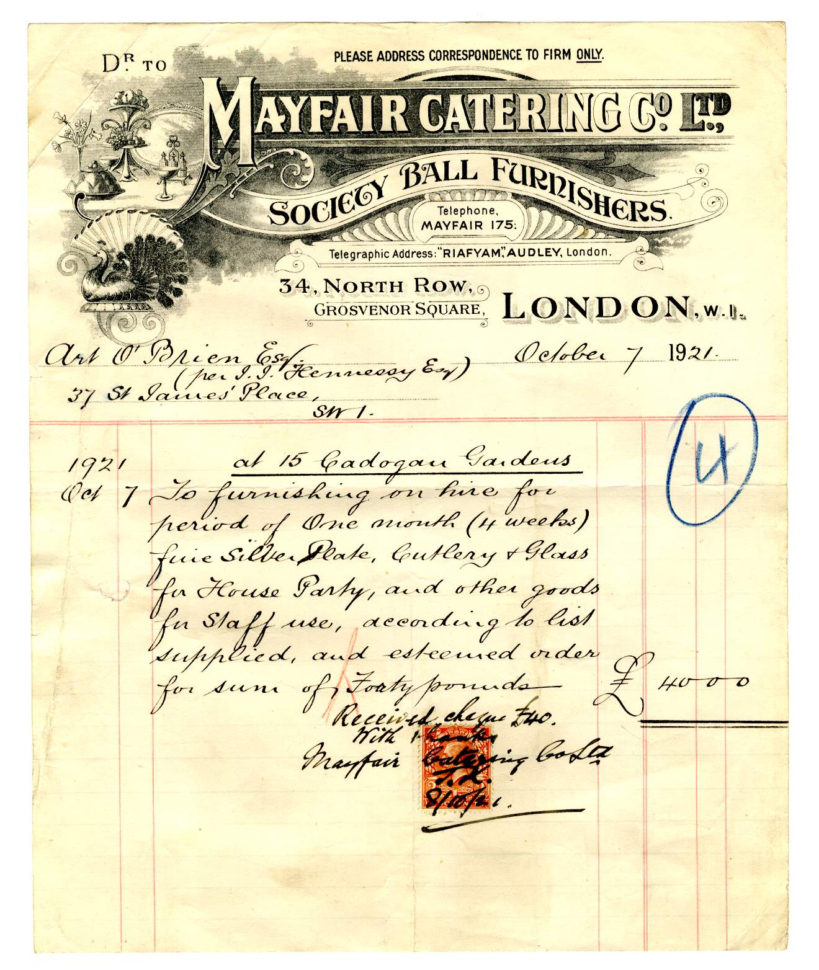 Dr. TO
PLEASE ADDRESS CORRESPONDENCE TO FIRM ONLY.
MAYFAIR CATERING Co. LTD.,
SOCIETY BALL FURNISHERS.
Telephone,
MAYFAIR 175.
Telegraphic Address: "RIAFYAM," AUDLEY, London.
34, NORTH ROW,
GROSVENOR SQUARE, LONDON, W.1.
Art O'Brien Esq. October 7 1921.
(per J.J. Hennessy Esq)
37 St James' Place,
SW1.
4
1921 at 15 Cadogan Gardens
Oct 7 To furnishing on hire for
period of One month (4 weeks)
fine Silver Plate, Cutlery & Glass
for House Party, and other goods
for Staff use, according to list
supplied, and esteemed order
for sum of Forty pounds £ 40 0 0
Received cheque £40.
With thanks
Mayfair Catering Co Ltd
8/10/21.